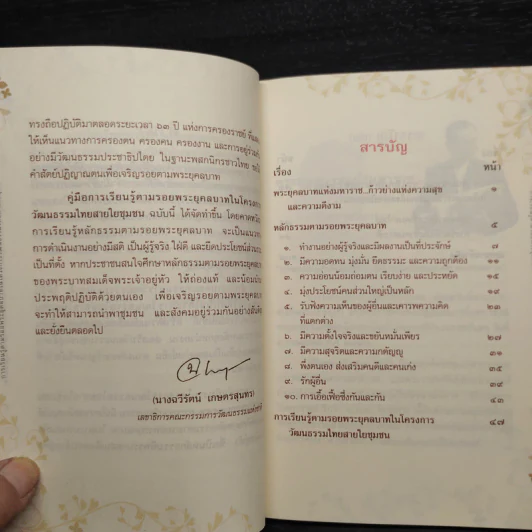 ทรงถือปฏิบัติมาตลอดระยะเวลา ๖๓ ปี แห่งการครองราชย์
ให้เห็นแนวทางการครองตน ครองคน ครองงาน และการอยู่ร่วมกัน
อย่างมีวัฒนธรรมประชาธิปไตย ในฐานะพสกนิกรชาวไทย
คำสัตย์ปฏิญาณตนเพื่อเจริญรอยตามพระยุคลบาท
คู่มือการเรียนรู้ตามรอยพระยุคลบาทในโครงการ
วัฒนธรรมไทยสายใยชุมชน ฉบับนี้ ได้จัดทำขึ้น โดยคาดหวัง
การเรียนรู้หลักธรรมตามรอยพระยุคลบาท จะเป็นแนวทาง
การดำเนินงานอย่างมีสติ เป็นผู้รู้จริง ใฝ่ดี และยึดประโยชน์ส่วนรวม
เป็นที่ตั้ง หากประชาชนสนใจศึกษาหลักธรรมตามรอยพระยุคลบาท
ของพระบาทสมเด็จพระเจ้าอยู่หัว ให้ถ่องแท้ และน้อมนำ
ประพฤติปฏิบัติด้วยตนเอง เพื่อเจริญรอยตามพระยุคลบาท
จะทำให้สามารถนำพาชุมชน และสังคมอยู่ร่วมกันอย่างสันติสุข
และยั่งยืนตลอดไป
(นางฉวีรัตน์ เกษตรสุนทร)
เลขาธิการคณะกรรมการวัฒนธรรมแห่งชาติ
สารบัญ
เรื่อง หน้า
พระยุคลบาทแห่งมหาราช...ก้าวย่างแห่งความสุข ๑
และความดีงาม
หลักธรรมตามรอยพระยุคลบาท ๕
๑. ทำงานอย่างผู้รู้จริงและมีผลงานเป็นที่ประจักษ์ ๗
๒. มีความอดทน มุ่งมั่น ยึดธรรมะ และความถูกต้อง ๑๑
๓. ความอ่อนน้อมถ่อมตน เรียบง่าย และประหยัด ๑๕
๔. มุ่งประโยชน์คนส่วนใหญ่เป็นหลัก ๑๙
๕. รับฟังความเห็นของผู้อื่นและเคารพความคิด ๒๓
ที่แตกต่าง
๖. มีความตั้งใจจริงและขยันหมั่นเพียร ๒๗
๗. มีความสุจริตและความกตัญญู ๓๑
๘. พึ่งตนเอง ส่งเสริมคนดีและคนเก่ง ๓๕
๙. รักผู้อื่น ๓๙
๑๐. การเอื้อเฟื้อซึ่งกันและกัน ๔๓
การเรียนรู้ตามรอยพระยุคลบาทในโครงการ ๔๗
วัฒนธรรมไทยสายใยชุมชน